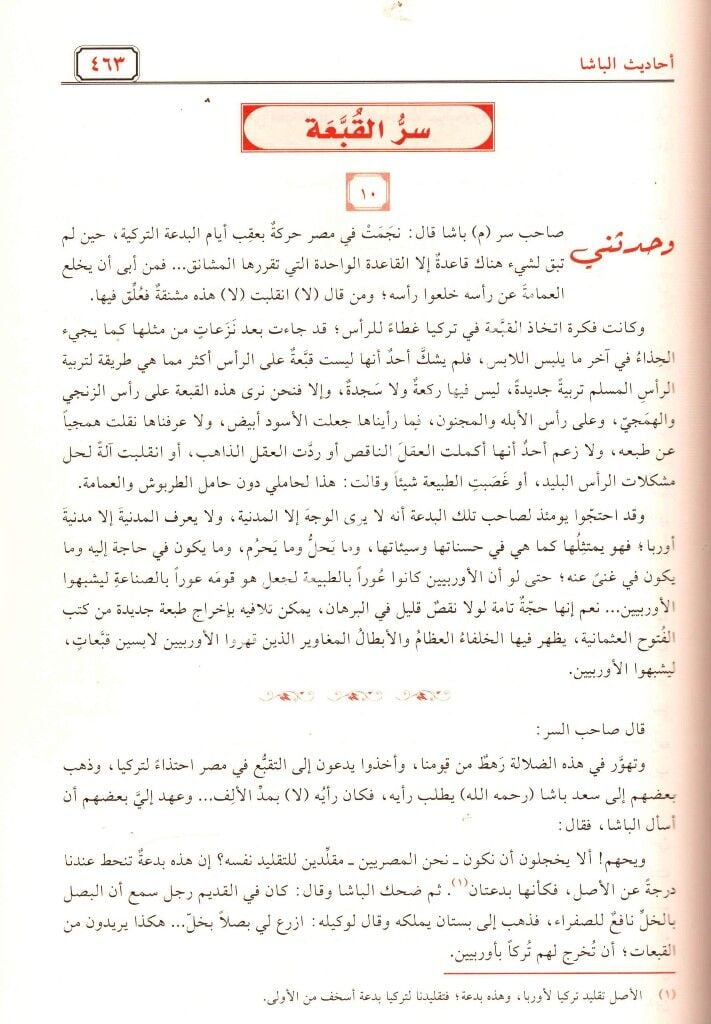 أحاديث الباشا
٤٦٣
سرُّ القُبَّعَة
١٠
وحدثني صاحب سر (م) باشا قال: نجَمَتْ في مصر حركةٌ بعقِب أيام البدعة التركية، حين لم
تبق لشيء هناك قاعدةٌ إلا القاعدة الواحدة التي تقررها المشانق... فمن أبى أن يخلع
العمامةَ عن رأسه خلعوا رأسه؛ ومن قال (لا) انقلبت (لا) هذه مشنقةً فعُلِّق فيها.
وكانت فكرة اتخاذ القبَّعة في تركيا غطاءً للرأس؛ قد جاءت بعد نَزَعاتٍ من مثلها كما يجيء
الحِذاءُ في آخر ما يلبس اللابس، فلم يشكَّ أحدٌ أنها ليست قبَّعةً على الرأس أكثر مما هي طريقة لتربية
الرأسِ المسلم تربيةً جديدةً، ليس فيها ركعةٌ ولا سَجدةٌ، وإلا فنحن نرى هذه القبعة على رأس الزنجي
والهمَجيّ، وعلى رأس الأبله والمجنون، فما رأيناها جعلت الأسود أبيض، ولا عرفناها نقلت همجياً
عن طبعه، ولا زعم أحدٌ أنها أكملت العقلَ الناقص أو ردَّت العقل الذاهب، أو انقلبت آلةً لحل
مشكلات الرأس البليد، أو غَصَبتِ الطبيعة شيئاً وقالت: هذا لحاملي دون حامل الطربوش والعمامة.
وقد احتجّوا يومئذ لصاحب تلك البدعة أنه لا يرى الوجهَ إلا المدنية، ولا يعرف المدنيةَ إلا مدنيةَ
أوربا؛ فهو يمتثِلُها كما هي في حسناتها وسيئاتها، وما يَحلُّ وما يَحرُم، وما يكون في حاجة إليه وما
يكون في غنىً عنه؛ حتى لو أن الأوربيين كانوا عُوراً بالطبيعة لجعل هو قومَه عوراً بالصناعةِ ليشبهوا
الأوربيين... نعم إنها حجّةٌ تامة لولا نقصٌ قليل في البرهان، يمكن تلافيه بإخراج طبعة جديدة من كتب
الفُتوح العثمانية، يظهر فيها الخلفاءُ العظامُ والأبطالُ المغاوير الذين قهروا الأوربيين لابسين قبَّعات،
ليشبهوا الأوربيين.
قال صاحب السر:
وتهوَّر في هذه الضلالة رَهطٌ من قومنا، وأخذوا يدعون إلى التقبُّع في مصر احتذاءً لتركيا، وذهب
بعضهم إلى سعد باشا (رحمه الله) يطلب رأيه، فكان رأيُه (لا) بمدِّ الألِف... وعهد إليَّ بعضهم أن
أسأل الباشا، فقال:
ويحهم! ألا يخجلون أن نكون ـ نحن المصريين ـ مقلِّدين للتقليد نفسه؟ إن هذه بدعةٌ تنحط عندنا
درجةً عن الأصل، فكأنها بدعتان(١). ثم ضحك الباشا وقال: كان في القديم رجل سمع أن البصل
بالخلِّ نافعٌ للصفراء، فذهب إلى بستان يملكه وقال لوكيله: ازرع لي بصلاً بخلّ... هكذا يريدون من
القبعات؛ أن تُخرج لهم تُركاً بأوربيين.
(١) الأصل تقليد تركيا لأوربا، وهذه بدعة؛ فتقليدنا لتركيا بدعة أسخف من الأولى.